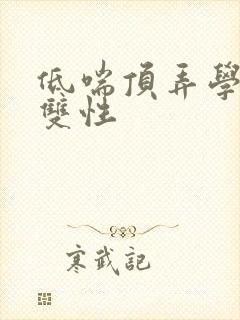 低喘頂弄學
雙性
寒武記